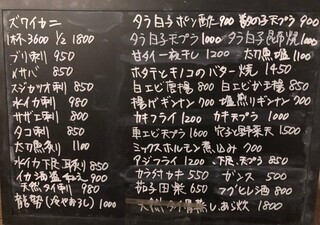 ズワイガニ
1杯 3600 1/2 1800
ブリ刺 950
〆サバ 850
スジガツオ刺 850
水イカ刺 980
サザエ刺 800
タコ刺 850
太刀魚炙り 1100
水イカ下足刺 850
イカ酒盗和え 900
天然タイ刺 980
龍勢(冷やおろし) 1000
タラ白子ポン酢 900 数の子天プラ 900
タラ白子天プラ 1000 タラ白子昆布焼 1000
甘タイ一夜干し 1200 太刀魚塩 1100
ホタテとキノコのバター焼 1450
白エビ唐揚 800 白エビかき揚 850
揚げギンナン 700 塩煎りギンナン 700
カキフライ 1200 カキ天プラ 1000
車エビ天プラ 1600 穴子と野菜天 1500
ミックスホルモン煮込み 700
アジフライ 1200 下足天プラ 850
カラゲカサキ 550 ガンス 500
茄子田楽 650 マグヒレ酒 800
あら炊 1800